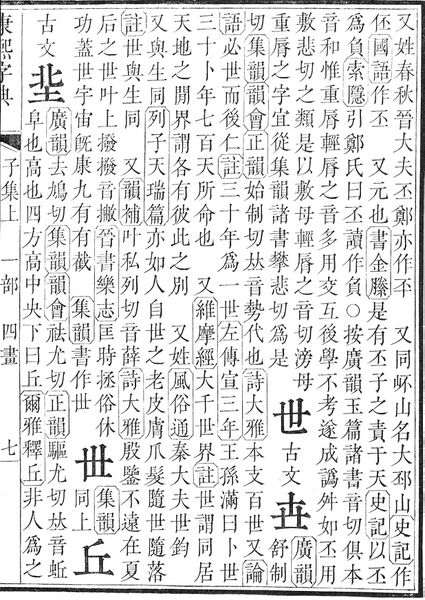 又姓春秋晉大夫丕鄭亦作㔻 又同岯山名大邳山史記作
伾國語作丕 又元也書金縢是有丕子之責于天史記以丕
爲負索隱引鄭氏曰丕讀作負○按廣韻玉篇諸書音切俱本
音和惟重脣輕脣之音多用交互後學不考遂成譌舛如丕用
敷悲切之類是以敷母輕脣之音切滂母
重脣之字宜從集韻諸書攀悲切爲是
世 古文 卋 廣韻舒制
切集韻韻會正韻始制切𠀤音勢代也詩大雅本支百世又論
語必世而後仁註三十年爲一世左傳宣三年王孫滿曰卜世
三十卜年七百天所命也 又維摩經大千世界註世謂同居
天地之閒界謂各有彼此之別 又姓風俗通秦大夫世鈞
又與生同列子天瑞篇亦如人自世之老皮膚爪髮隨世隨落
註世與生同 又韻補叶私列切音薛詩大雅殷鑒不遠在夏
后之世叶上撥撥音撇晉書樂志匡時拯俗休
功蓋世宇宙旣康九有有截 集韻書作世
丗 集韻同上
丘
古文 𠀌 廣韻去鳩切集韻韻會袪尤切正韻驅尤切𠀤音蚯
阜也高也四方高中央下曰丘爾雅釋丘非人爲之
康熙字典 子集上 一部 四畫 七